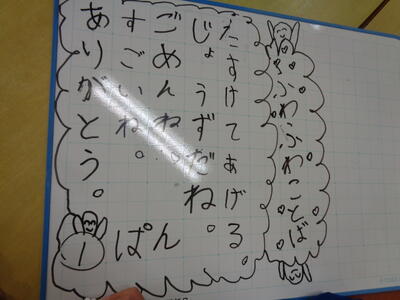 ふわふわことば
たすけてあげる
じょうずだね。
ごめんね。
すごいね。
ありがとう。
1ぱん